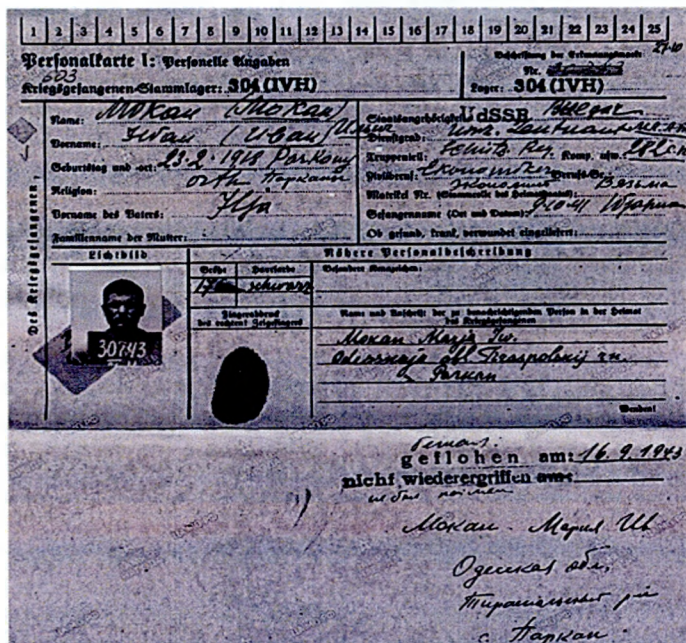 1 2 3 4 5 6 7 8 9 10 11 12 13 14 15 16 17 18 19 20 21 22 23 24 25
Personalkarte I: Personelle Angaben
Beschriftung der Erkennungsmarke
Nr.
603
Kriegsgefangenen-Stammlager: 304 (IVH)
Lager: 304 (IVH)
Des Kriegsgefangenen
Name: Mokan (Мокан)
Vorname: Iwan (Иван)
Geburtstag und -ort: 23.2.1918 Parkany
Паркани
Religion: orth.
Vorname des Vaters: Ilja
Familienname der Mutter:
Staatsangehörigkeit: UdSSR
Dienstgrad: Leutnant
Truppenteil: Schütz. Reg. Komp. usw.:
Zivilberuf: Ekonomiker Berufs-Gr.:
Matrikel Nr. (Stammrolle des Heimatstaates): Вязьма
Gefangennahme (Ort und Datum):
Ob gesund, krank, verwundet eingeliefert:
Lichtbild
30743
Nähere Personalbeschreibung
Größe Haarfarbe Besondere Kennzeichen:
schwarz
Fingerabdruck
des rechten! Zeigefingers
Name und Anschrift der zu benachrichtigenden Person in der Heimat
des Kriegsgefangenen
Mokan Marja Iw.
Odesskaja obl. Tiraspolskij
Parkan
Wenden!
geflohen am: 16.9.1943
nicht wiederergriffen am:
не был пойман
Мокан Мария Ив
Одесская обл.
Тираспольский р-н
с. Паркан